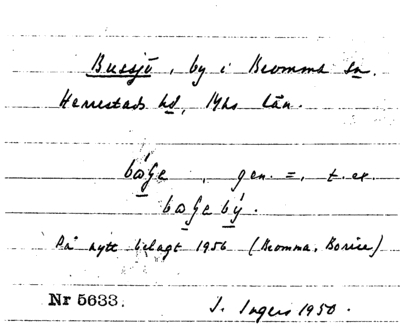 Bussjö, by i Bromma sn.
Herrestads hd, Mhs län.
gen. =, t. ex.
På nytt belagt 1956 (Bromma, Borrie)
Nr 5633.
J. Ingers 1950.